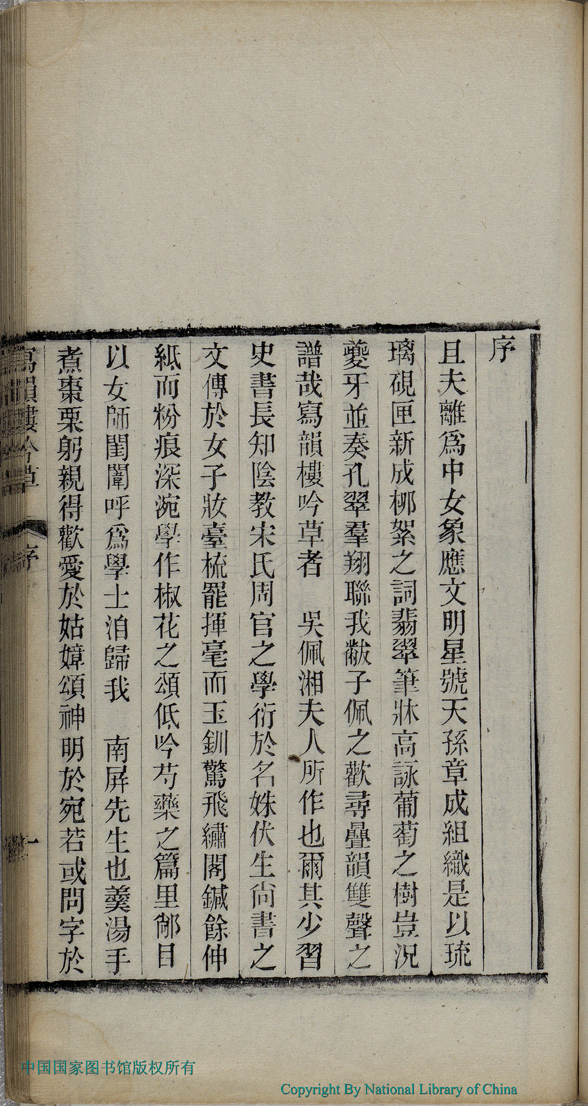 序
且夫離爲中女象應文明星號天孫章成組織是以琉
璃硯匣新成桺絮之詞翡翠筆牀高詠葡萄之樹豈況
夔牙並奏孔翠羣翔聯我黻子佩之歡尋疊韻雙聲之
譜哉寫韻樓吟草者　吳佩湘夫人所作也爾其少習
史書長知陰教宋氏周官之學衍於名姝伏生尙書之
文傳於女子妝臺梳罷揮毫而玉釧驚飛繡閣鍼餘伸
紙而粉痕深涴學作椒花之頌低吟芍藥之篇里鄰目
以女師閨闈呼爲學士洎歸我　南屏先生也羹湯手
煮棗栗躬親得歡愛於姑嫜頌神明於宛若或問字於
寫韻樓吟草　序　一
中国国家图书馆版权所有
Copyright By National Library of China